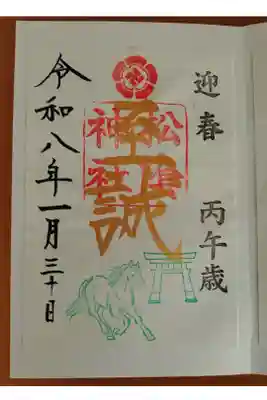 迎春 丙午歳
至誠
松陰
神社
令和八年一月三十日